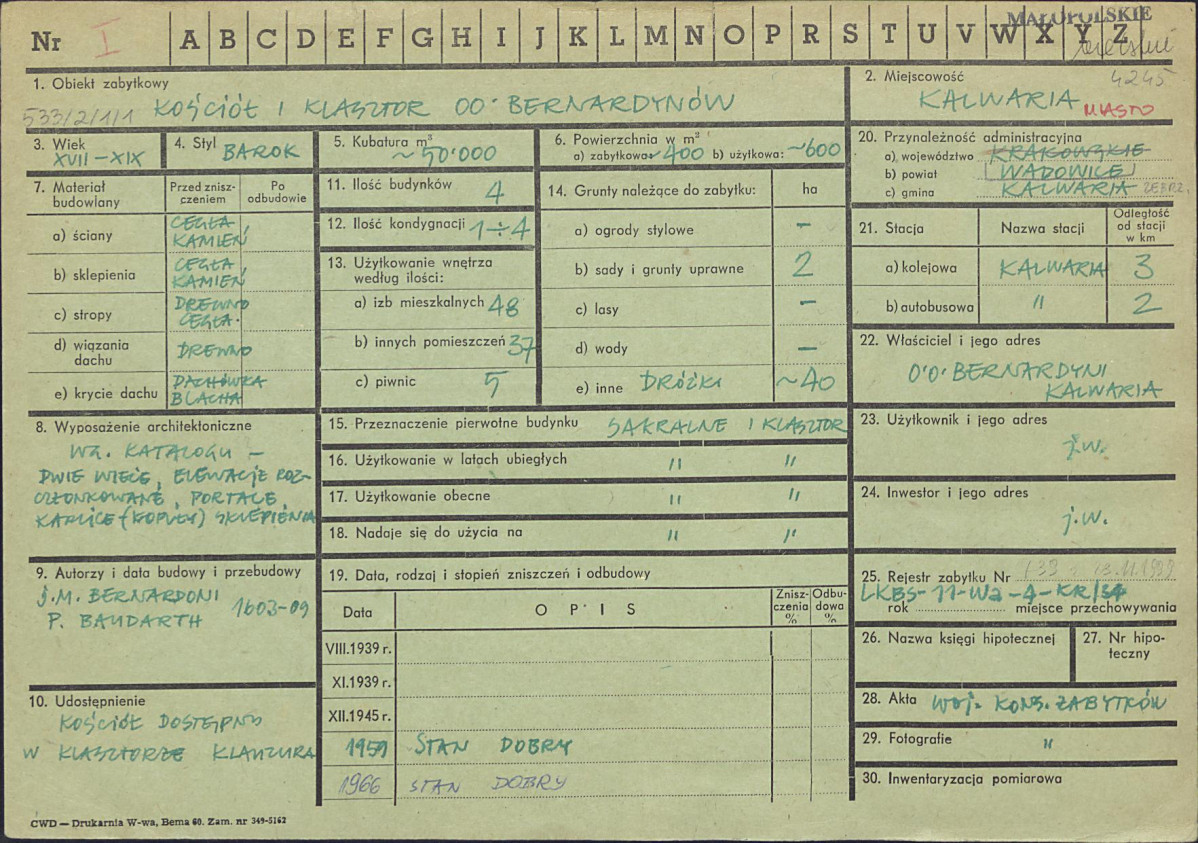 Nr I A B C D E F G H I J K L M N O P R S T U V W X Y Z
MAŁOPOLSKIE
1. Obiekt zabytkowy
533/2/1/1 KOŚCIÓŁ I KLASZTOR OO. BERNARDYNÓW
2. Miejscowość 4245
KALWARIA MIASTO
3. Wiek
XVII – XIX
4. Styl BAROK
5. Kubatura m³
~ 50'000
6. Powierzchnia w m²
a) zabytkowa: ~ 400 b) użytkowa: ~600
20. Przynależność administracyjna
a) województwo KRAKOWSKIE
b) powiat WADOWICE
c) gmina KALWARIA ZEBRZ.
7. Materiał budowlany
Przed znisz-
czeniem
Po
odbudowie
a) ściany CEGŁA, KAMIEŃ
b) sklepienia CEGŁA, KAMIEŃ
c) stropy DREWNO CEGŁA.
d) wiązania dachu DREWNO
e) krycie dachu DACHÓWKA BLACHA
11. Ilość budynków 4
12. Ilość kondygnacji 1÷4
13. Użytkowanie wnętrza
według ilości:
a) izb mieszkalnych 48
b) innych pomieszczeń 37
c) piwnic 5
14. Grunty należące do zabytku: ha
a) ogrody stylowe –
b) sady i grunty uprawne 2
c) lasy –
d) wody –
e) inne DRÓŻKI ~40
21. Stacja Nazwa stacji
Odległość
od stacji
w km
a) kolejowa KALWARIA 3
b) autobusowa " 2
22. Właściciel i jego adres
O'O' BERNARDYNI
KALWARIA
8. Wyposażenie architektoniczne
WG. KATALOGU –
DWIE WIEŻE, ELEWACJE ROZ-
CZŁONKOWANE, PORTALE,
KAPLICE (KOPUŁY) SKLEPIENIA
15. Przeznaczenie pierwotne budynku SAKRALNE I KLASZTOR
16. Użytkowanie w latach ubiegłych " "
17. Użytkowanie obecne " "
18. Nadaje się do użycia na " "
23. Użytkownik i jego adres
j.w.
24. Inwestor i jego adres
j.w.
9. Autorzy i data budowy i przebudowy
J.M. BERNARDONI
P. BAUDARTH 1603-09
19. Data, rodzaj i stopień zniszczeń i odbudowy
Data OPIS
Znisz-
czenia
%
Odbu-
dowa
%
VIII.1939 r.
XI.1939 r.
XII.1945 r.
1959 STAN DOBRY
1966 STAN DOBRY
25. Rejestr zabytku Nr
LKBS-11-Wa-4-KR/34
rok miejsce przechowywania
26. Nazwa księgi hipotecznej
27. Nr hipo-
teczny
28. Akta WOJ. KONS. ZABYTKÓW
29. Fotografie "
30. Inwentaryzacja pomiarowa
10. Udostępnienie
KOŚCIÓŁ DOSTĘPNO
W KLASZTORZE KLAUZURA
CWD — Drukarnia W-wa, Bema 60. Zam. nr 349-5162